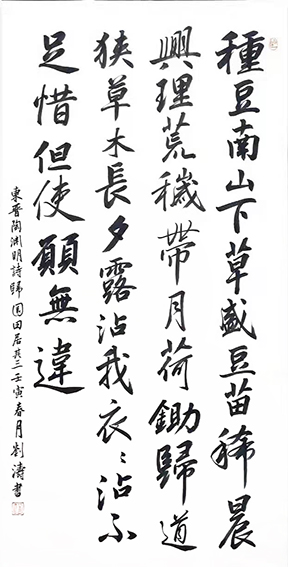 種豆南山下草盛豆苗稀晨
興理荒穢帶月荷鋤歸道
狹草木長夕露沾我衣〻沾不
足惜但使願無違
東晉陶淵明詩歸園田居其三壬寅春月劉濤書